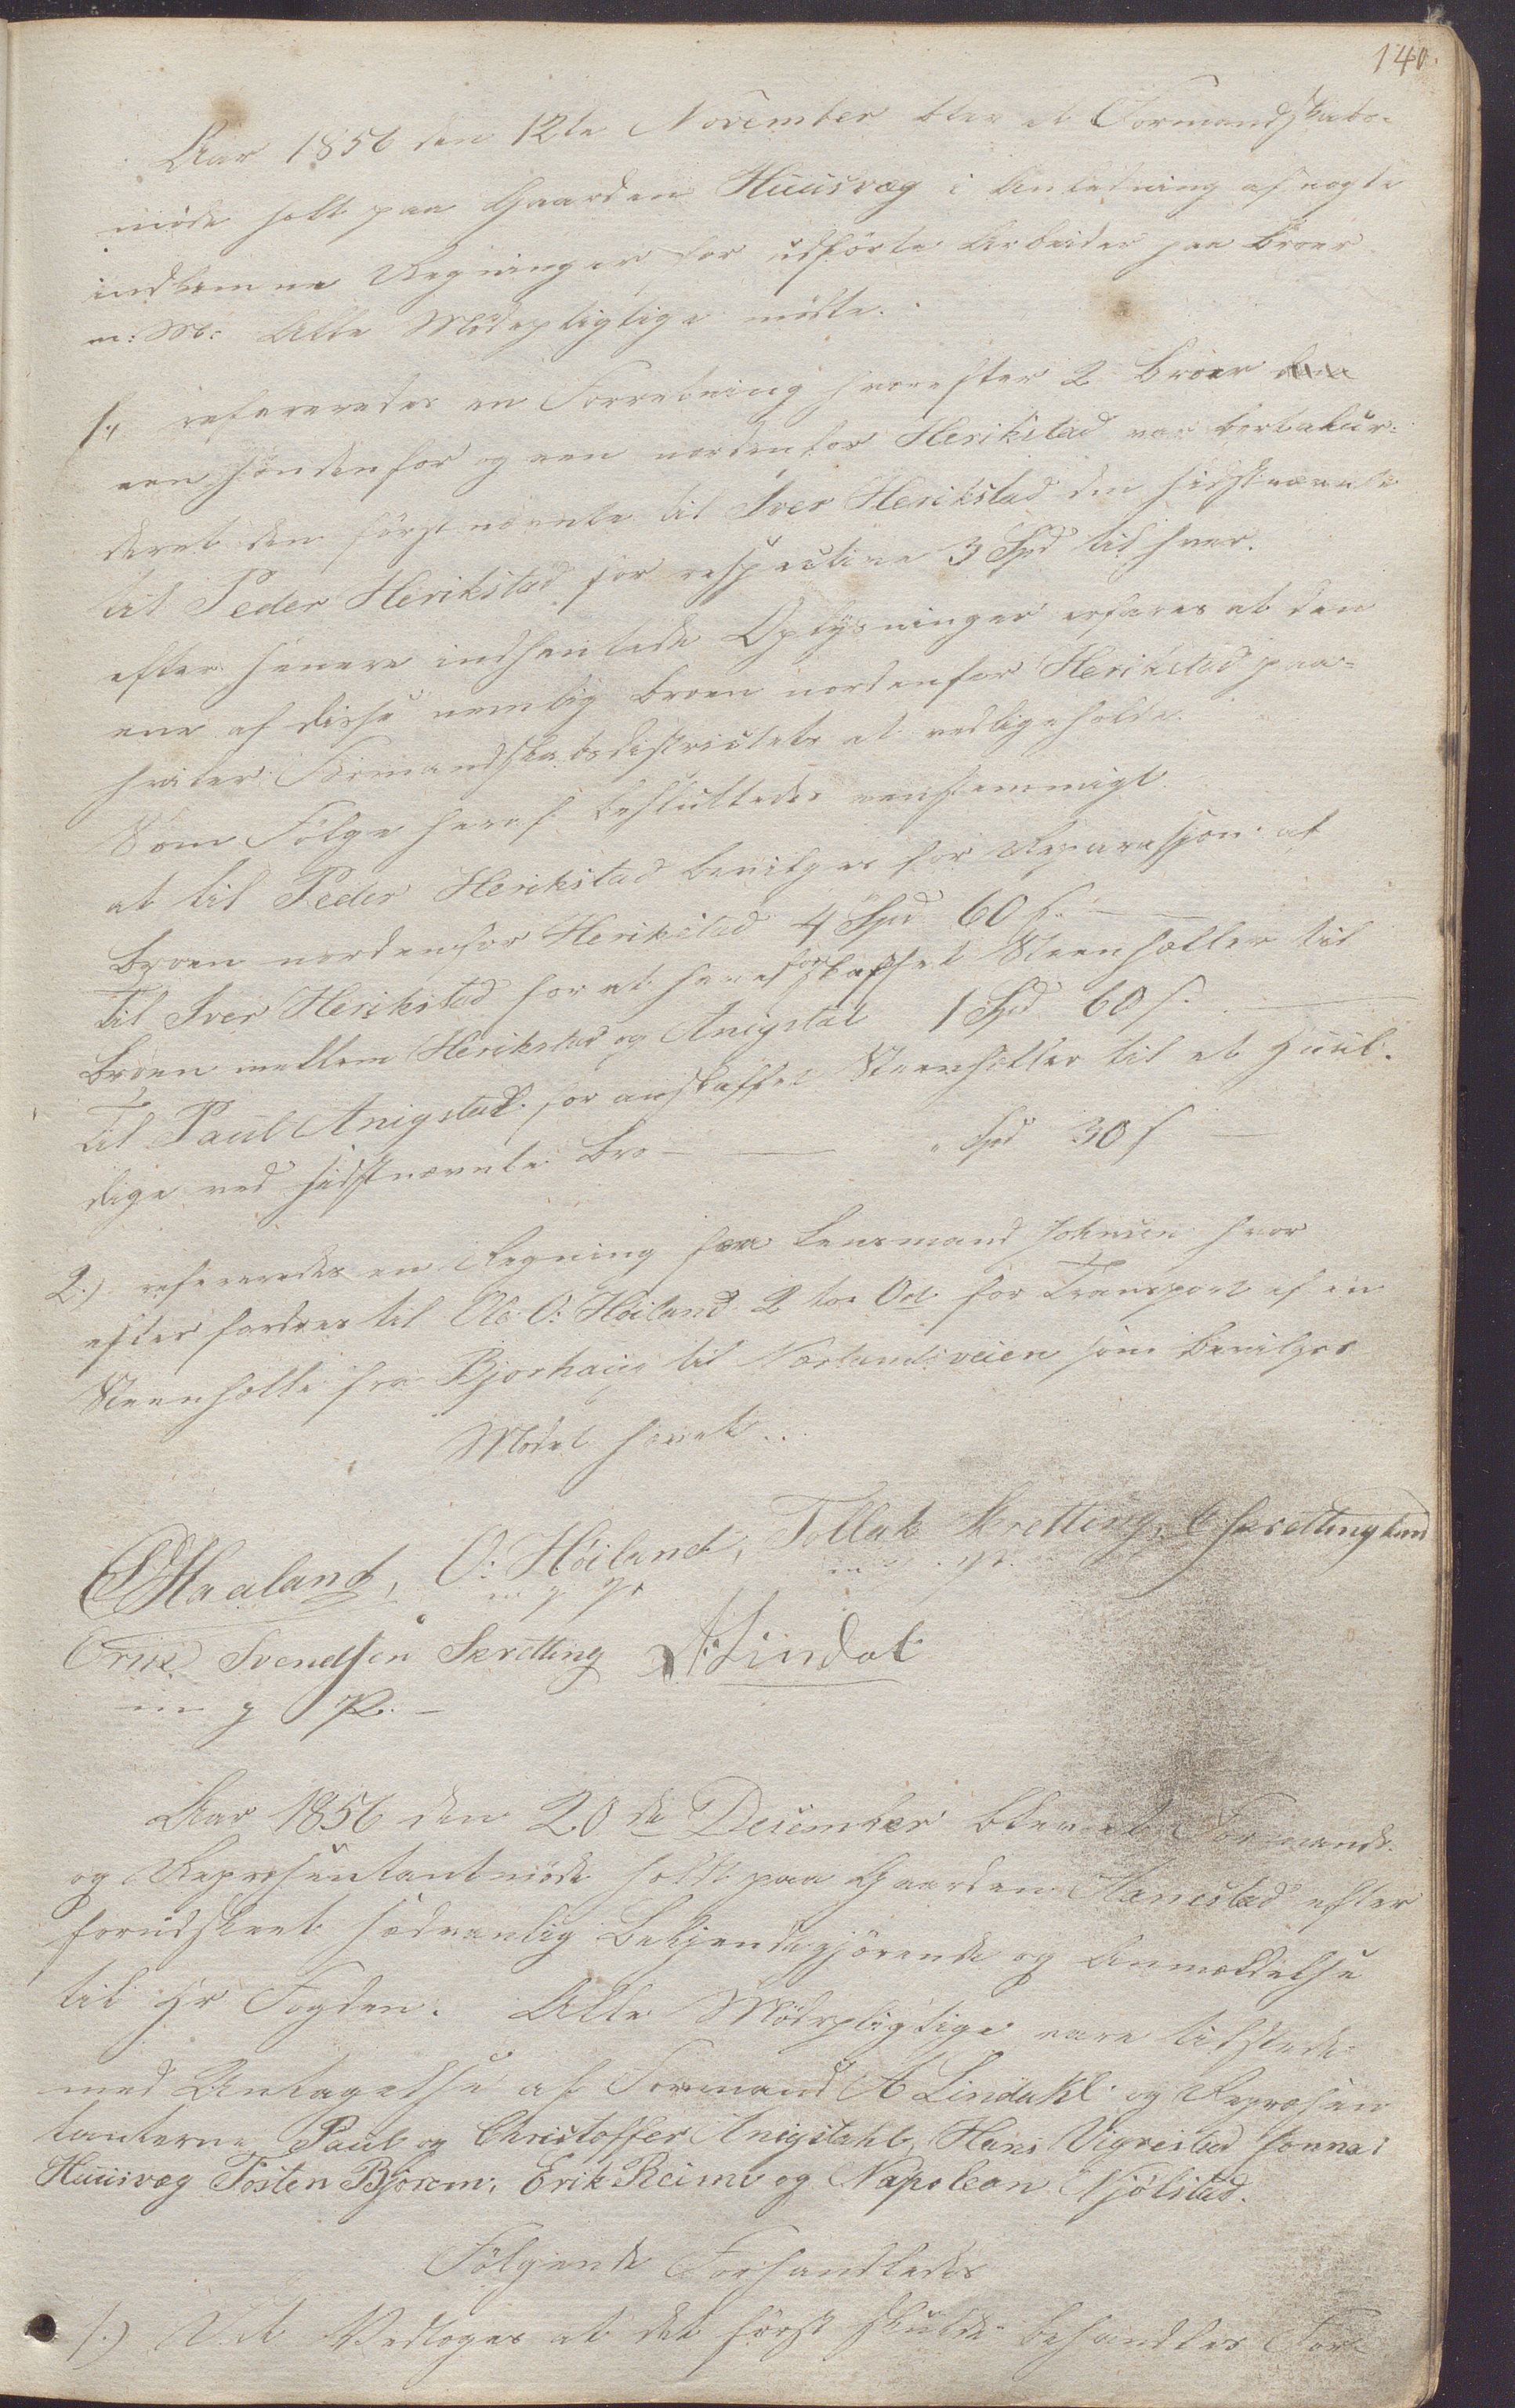 140.
Aar 1856 den 12te November blev et Formandskabs-
møde holt paa Gaarden Huusvæg i Anledning af nogle
indkomne Regninger for udførte Arbeider paa Broer
m: M: Alle Mødepligtige mødte.
1.) refereredes en Forretning hvorefter 2 Broer
een søndenfor og een nordenfor Herikstad var bortakur-
deret den først nævnte til Iver Herikstad den sidstnævnte
til Peder Herikstad for respective 3 Spd til hver.
efter senere indhentede Oplysninger erfares at den
ene af disse nemlig broen nordenfor Herikstad paa-
hviler Formandskabsdistrictets at vedligeholde.
Som Følge heraf besluttedes eenstemmigt
at til Peder Herikstad bevilges for Reparasjon af
Broen nordenfor Herikstad 4 Spd 60 s. —
Til Iver Herikstad for at have forskaffet Steenheller til
Broen mellem Herikstad og Anigstal 1 Spd 60 s. —
Til Paul Anigstad for anskaffet Steenheller til et Huul-
dige ved sidstnævnte Bro — — " Spd 30 s —
2.) refereredes en Regning fra Lensmand Johnsen hvor
efter fordres til Ole O: Høiland 2 to Ort for Transport af en
Steenhelle fra Bjorhaug til Nærlandsveien som bevilges
Mødet hævet..
Haaland, O: Høiland, Tollak Skretting, Skrettingland
m g P m. p.
Erik Svendsen Skretting A: Lindal
m g P. —
Aar 1856 den 20de December blev et Formands-
og Repræsentantmøde holt paa Gaarden Hanistad efter
forudskeet sædvanlig Bekjendtgjørende og Anmældelse
til Hr Fogden. Alle Mødepligtige vare tilstede
med Undtagelse af Formand A Lindahl og Repræsen
tanterne Paul og Christoffer Anigstahl, Hans Vigrestad Jonna:
Huusvæg Tosten Bjorom, Erik Reime og Napolean Njølstad.
Følgende Forhandledes
1.) Det Vedtoges at det først skulde behandles For-